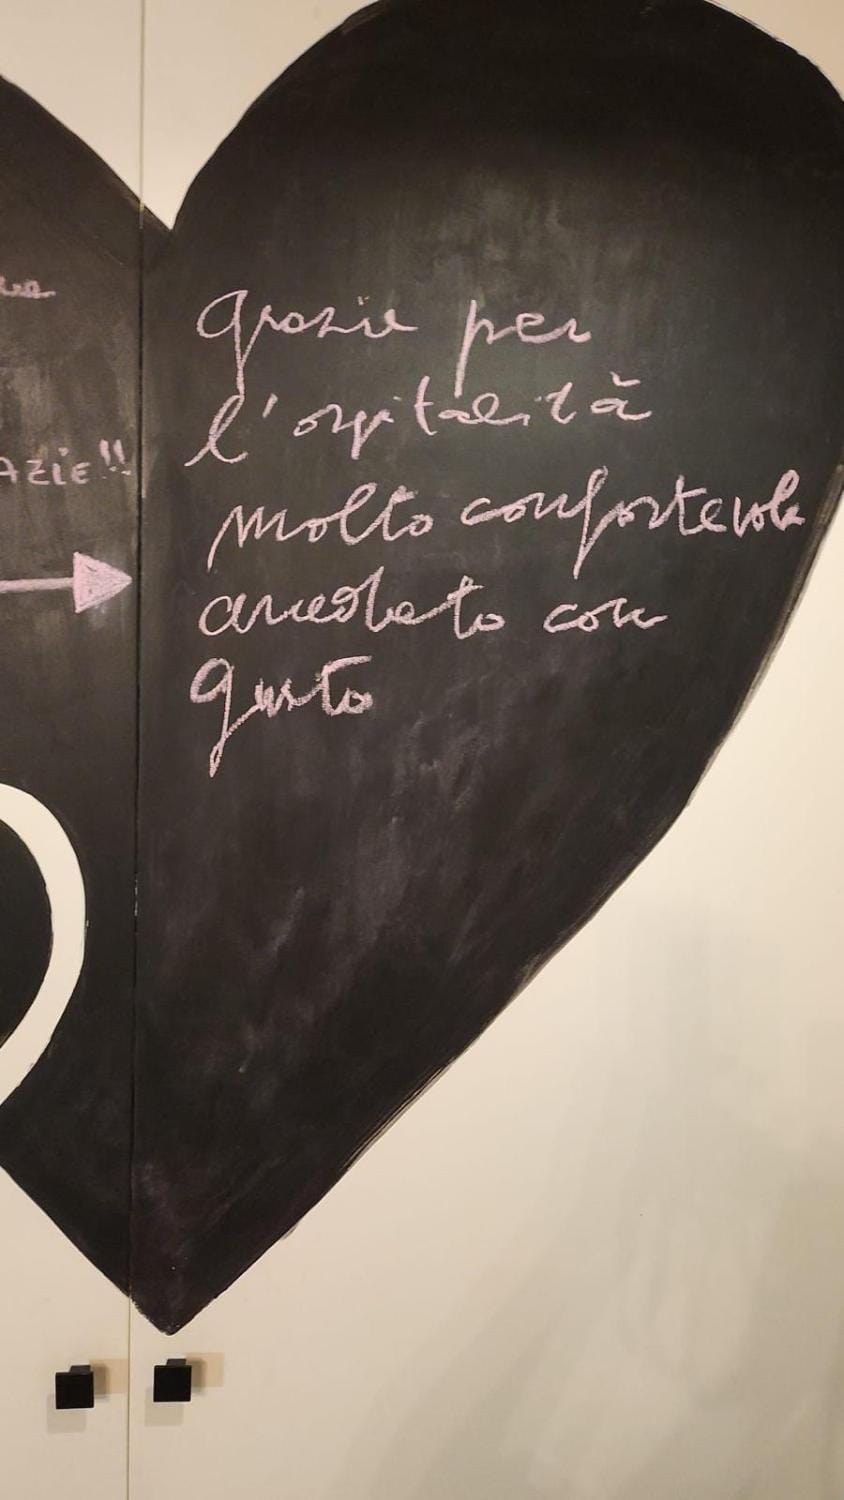 AZIE!!
grazie per
l'ospitalità
molto confortevole
arredato con
gusto